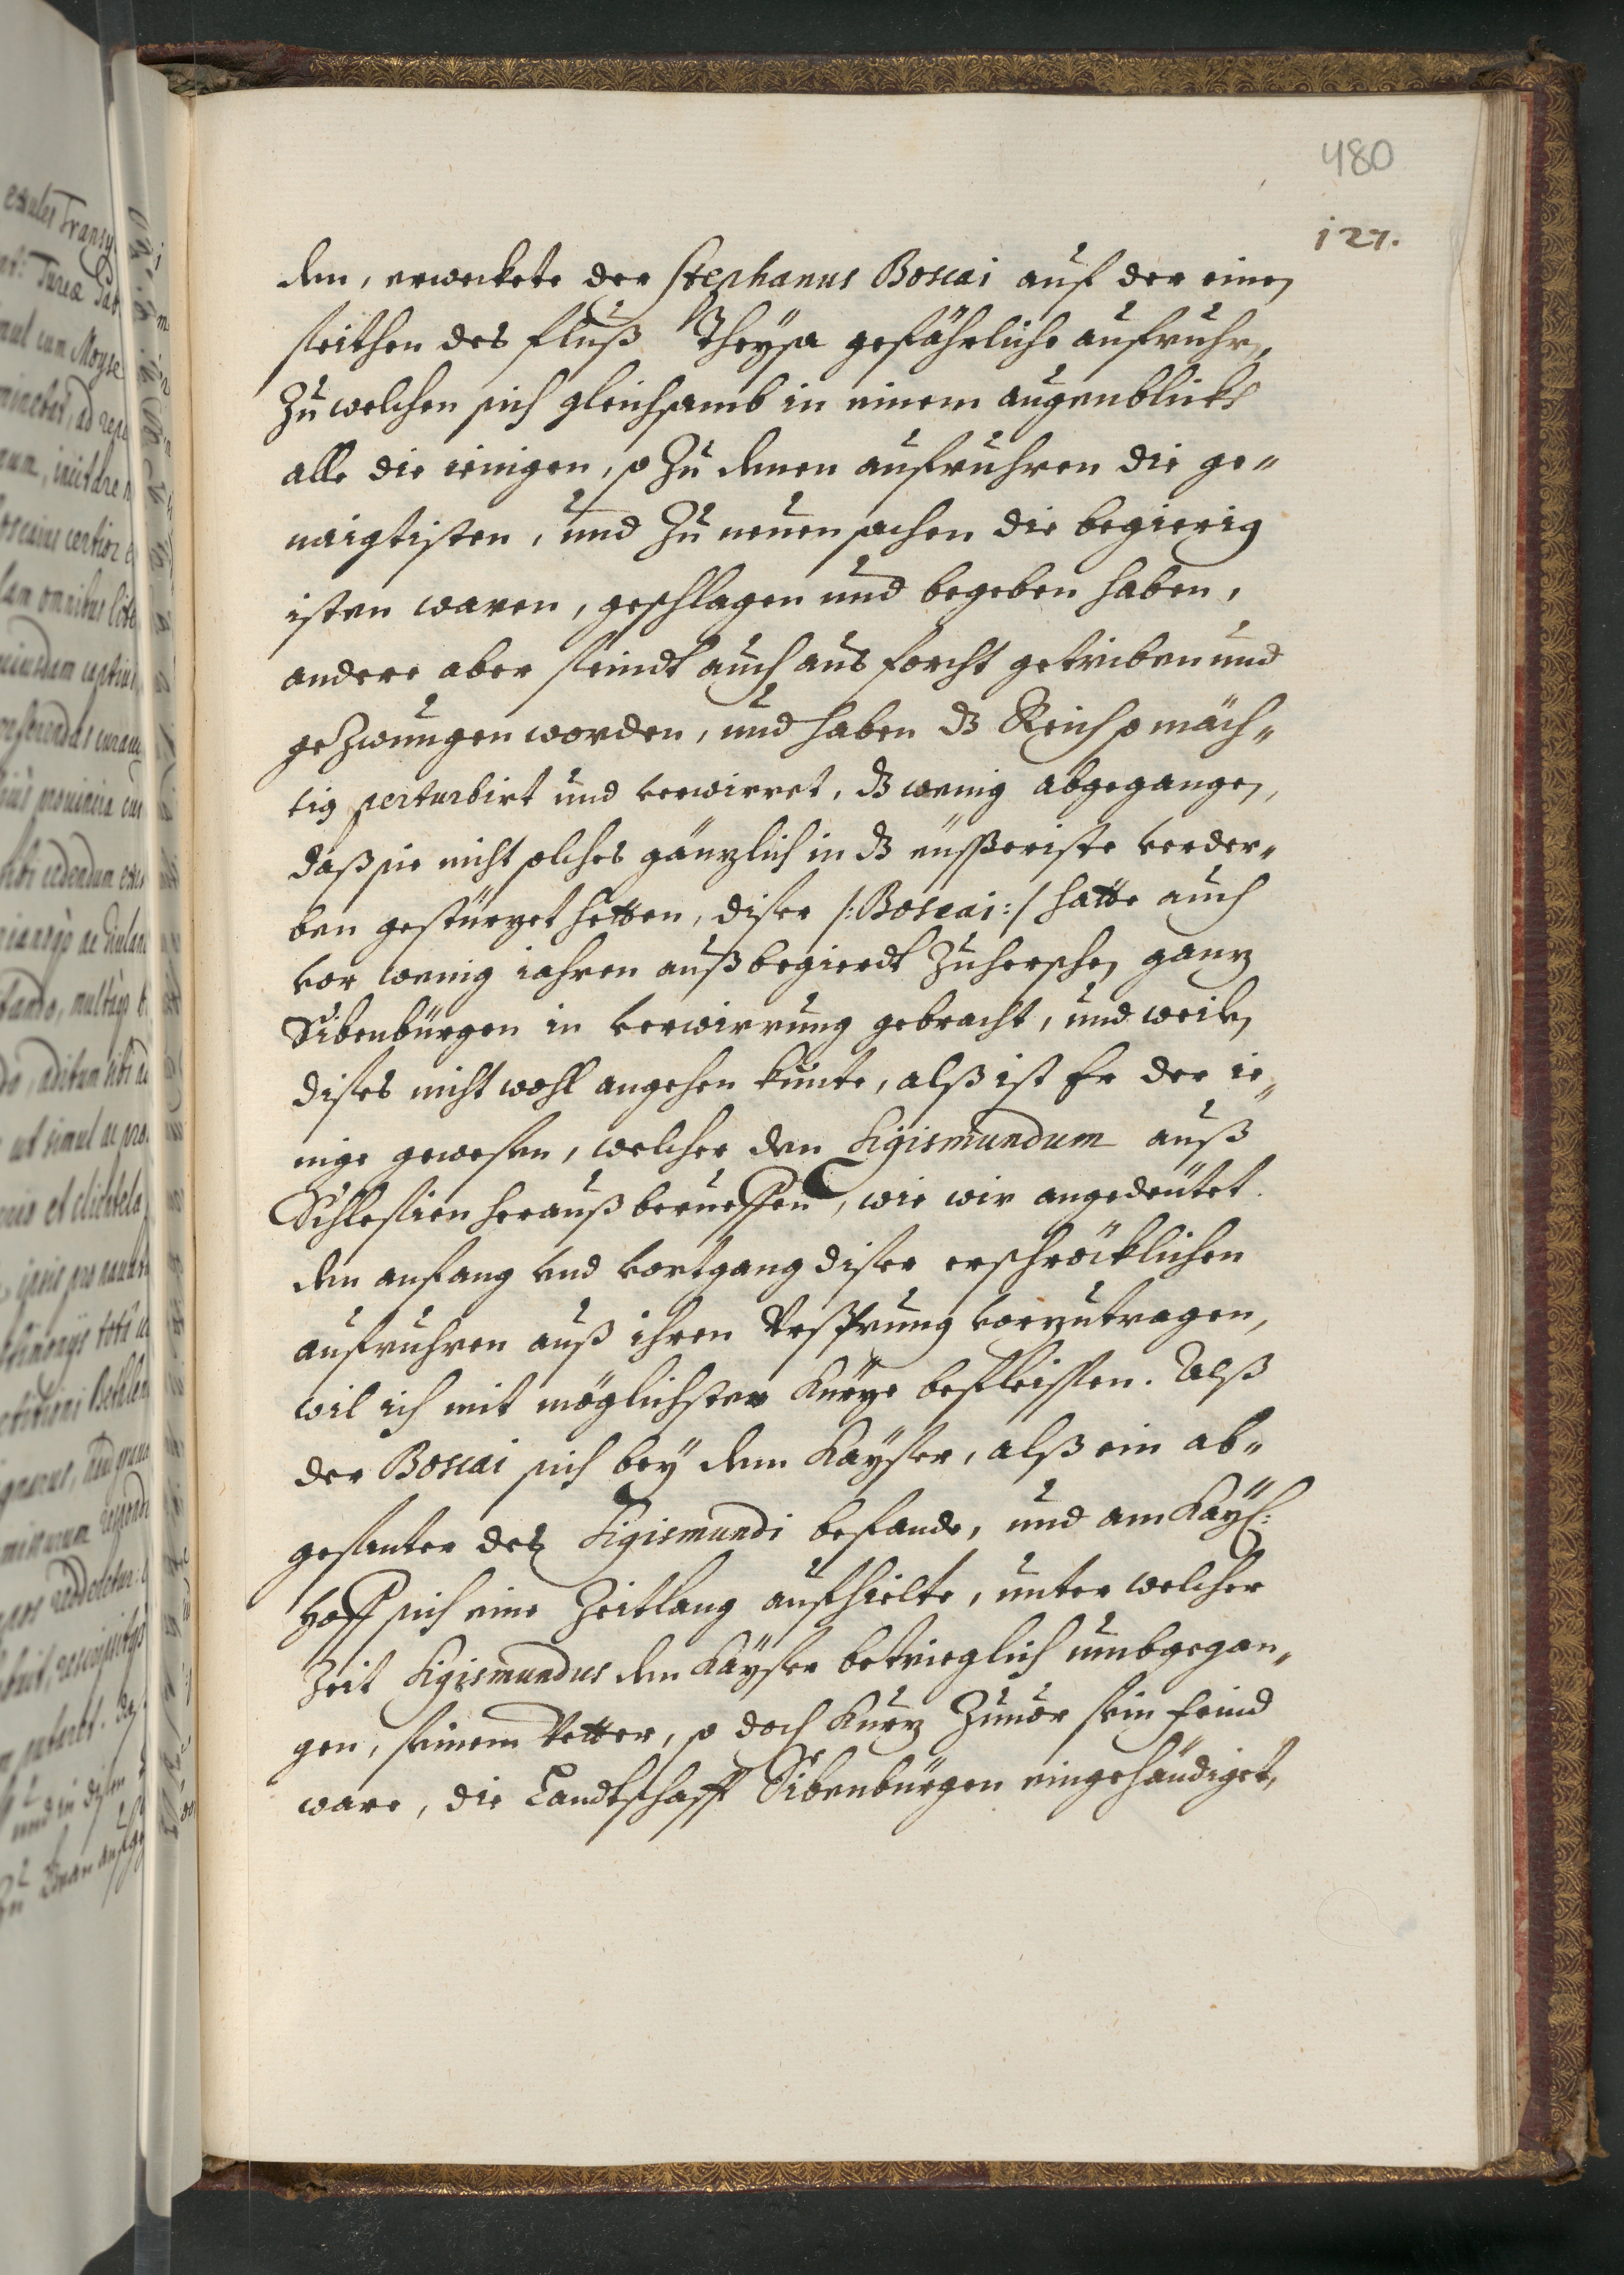 480
127.
den, erweckete der Stephanus Boscai auf der einen
seithen des fluß Theysa gefährliche aufruhr,
Zu welchen sich gleichsamb in einem augenblickh
alle die ienigen, so Zu denen aufruhren die ge„
naigtisten, und Zu neuen sachen die begierig
isten waren, geschlagen und begeben haben,
andere aber seindt auch aus forcht getriben und
geZwungen worden, und haben dz Reich so mäch„
tig perturbirt und verwirret, dz wenig abgegangen,
daß sie nicht solches gänzlich in dz eüsseriste verder„
ben gestürzet hetten, diser /:Boscai:/ hatte auch
vor wenig iahren auß begierdt Zuherschen ganz
Sibenbürgen in verwirrung gebracht, und weilen
dises nicht wohl angehen kunte, alß ist Er der ie„
nige gewesen, welcher den Sigismundum auß
Schlesien herauß berueffen, wie wir angedeütet.
den anfang vnd vortgang diser erschröcklichen
aufruhren auß ihren Vrsprung vorzutragen,
wil ich mit möglichster kürze befleissen. Alß
der Boscai sich bey dem Kayser, alß ein ab„
gesanter des Sigismundi befande, und am Kayß:
hoff sich eine Zeitlang aufhielte, unter welcher
Zeit Sigismundus den Kayser betrieglich umbgegan„
gen, seinem Vetter, so doch kurz Zuuor sein feind
ware, die Landtschafft Sibenbürgen eingehändiget,